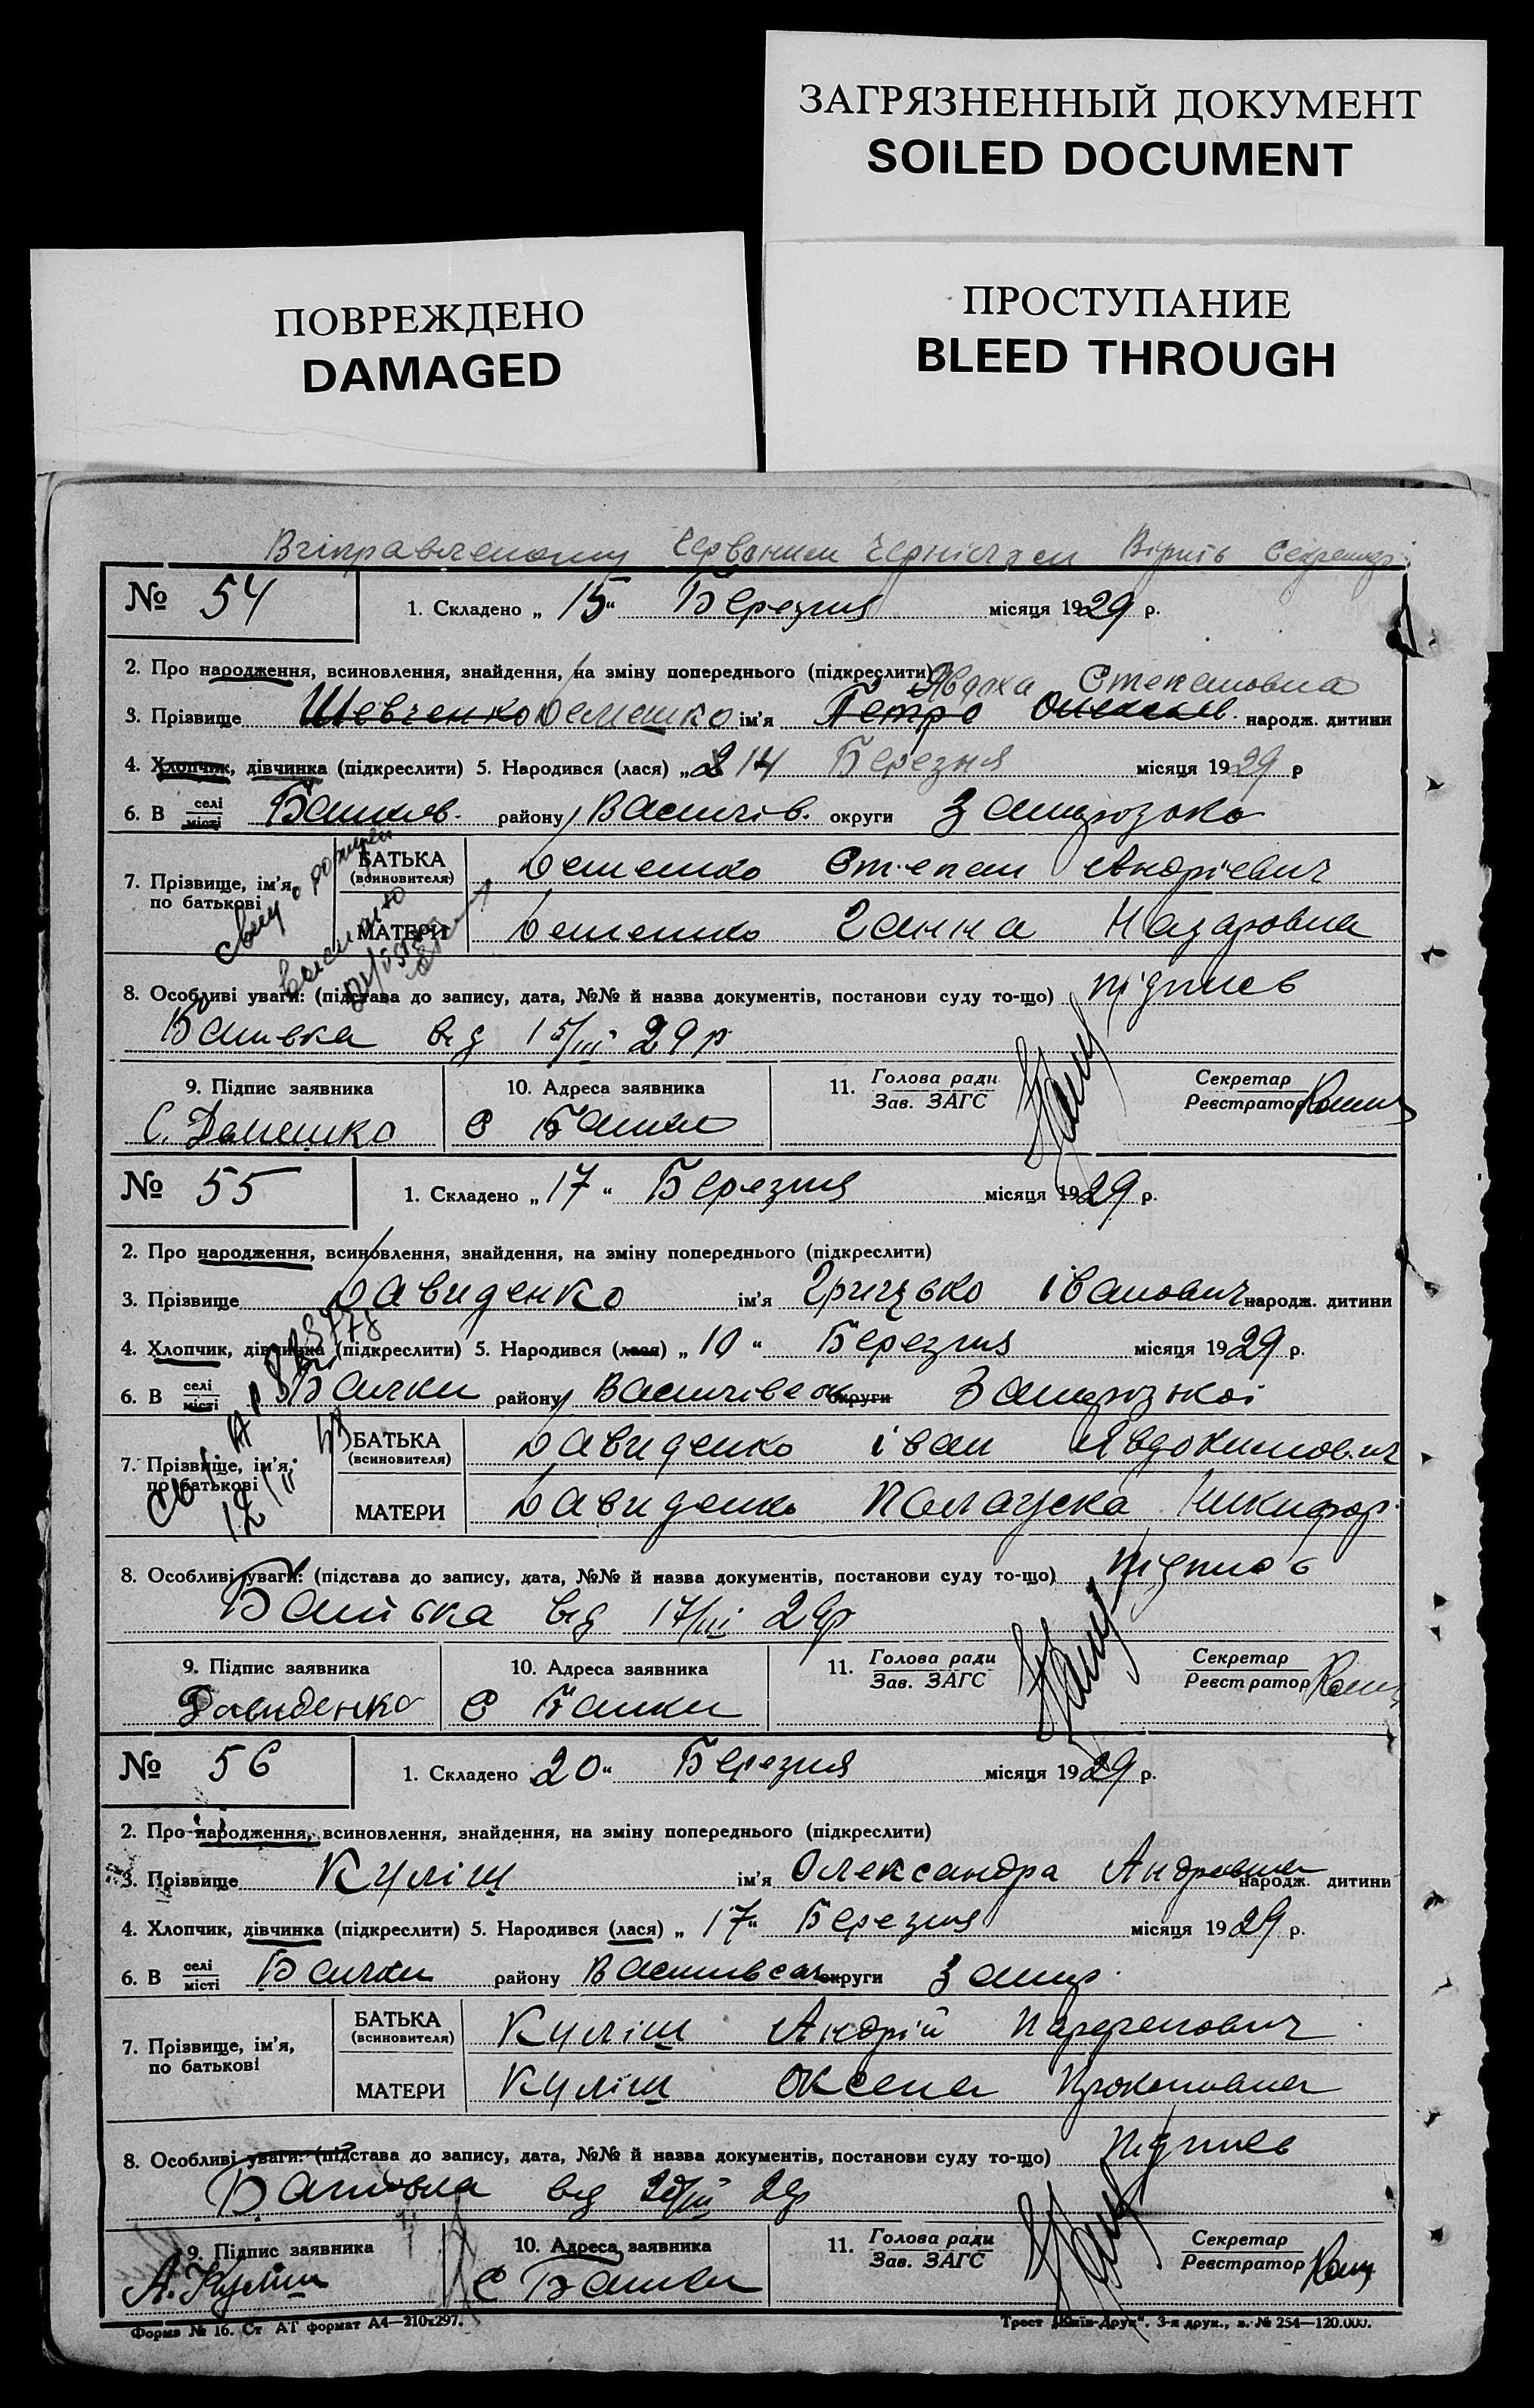 ЗАГРЯЗНЕННЫЙ ДОКУМЕНТ
SOILED DOCUMENT
ПОВРЕЖДЕНО
DAMAGED
ПРОСТУПАНИЕ
BLEED THROUGH
Червоним Вірить
№ 54 1. Складено „ 15 “ Березня місяця 1929 р.
2. Про народження, всиновлення, знайдення, на зміну попереднього (підкреслити)
Явдоха Степановна
3. Прізвище Шевченко Демешко ім'я Петро народж. дитини
4. Хлопчик, дівчинка (підкреслити) 5. Народився (лася) „ 14 Березня місяця 1929 р
6. В селі місті району Василів. округи
7. Прізвище, ім'я, по батькові
БАТЬКА (всиновителя) Демешко Степан Андрієвич
МАТЕРИ Демешко Ганна Назаровна
8. Особливі уваги: (підстава до запису, дата, №№ й назва документів, постанови суду то-що) підпись
Батька від 15/III 29 р
9. Підпис заявника 10. Адреса заявника 11. Голова ради Зав. ЗАГС Секретар Реєстратор
С. Демешко С
№ 55 1. Складено „ 17 “ Березня місяця 1929 р.
2. Про народження, всиновлення, знайдення, на зміну попереднього (підкреслити)
3. Прізвище Давиденко ім'я Грицько Іванович народж. дитини
4. Хлопчик, дівчинка (підкреслити) 5. Народився (лася) „ 10 “ Березня місяця 1929 р.
6. В селі місті Балки району округи
7. Прізвище, ім'я, по батькові
БАТЬКА (всиновителя) Давиденко Іван Явдокимович
МАТЕРИ Давиденко Никифор.
8. Особливі уваги: (підстава до запису, дата, №№ й назва документів, постанови суду то-що) підпись
Батька від 17/III 29р
9. Підпис заявника 10. Адреса заявника 11. Голова ради Зав. ЗАГС Секретар Реєстратор
Давиденко С Балки
№ 56 1. Складено 20 “ Березня місяця 1929 р.
2. Про народження, всиновлення, знайдення, на зміну попереднього (підкреслити)
3. Прізвище Куліш ім'я Олександра народж. дитини
4. Хлопчик, дівчинка (підкреслити) 5. Народився (лася) „ 17 “ Березня місяця 1929 р.
6. В селі місті Балки району округи Запор.
7. Прізвище, ім'я, по батькові
БАТЬКА (всиновителя) Куліш Андрій
МАТЕРИ Куліш Оксена
8. Особливі уваги: (підстава до запису, дата, №№ й назва документів, постанови суду то-що) підпись
Батька від 20/III 29р
9. Підпис заявника 10. Адреса заявника 11. Голова ради Зав. ЗАГС Секретар Реєстратор
А. Куліш С Балки
Форма № 16. Ст АТ формат А4—210х297. Трест „Київ-Друк“. 3-я друк., з. № 254—120.000.